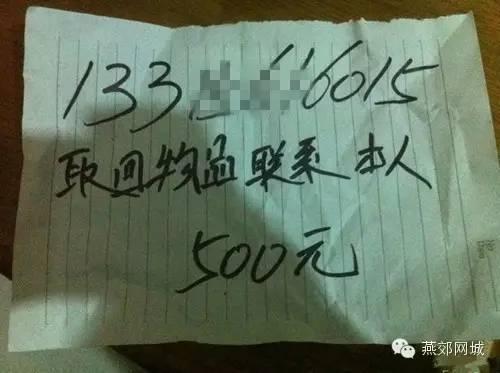 133 116015
取回物品联系本人
500元
燕郊网城